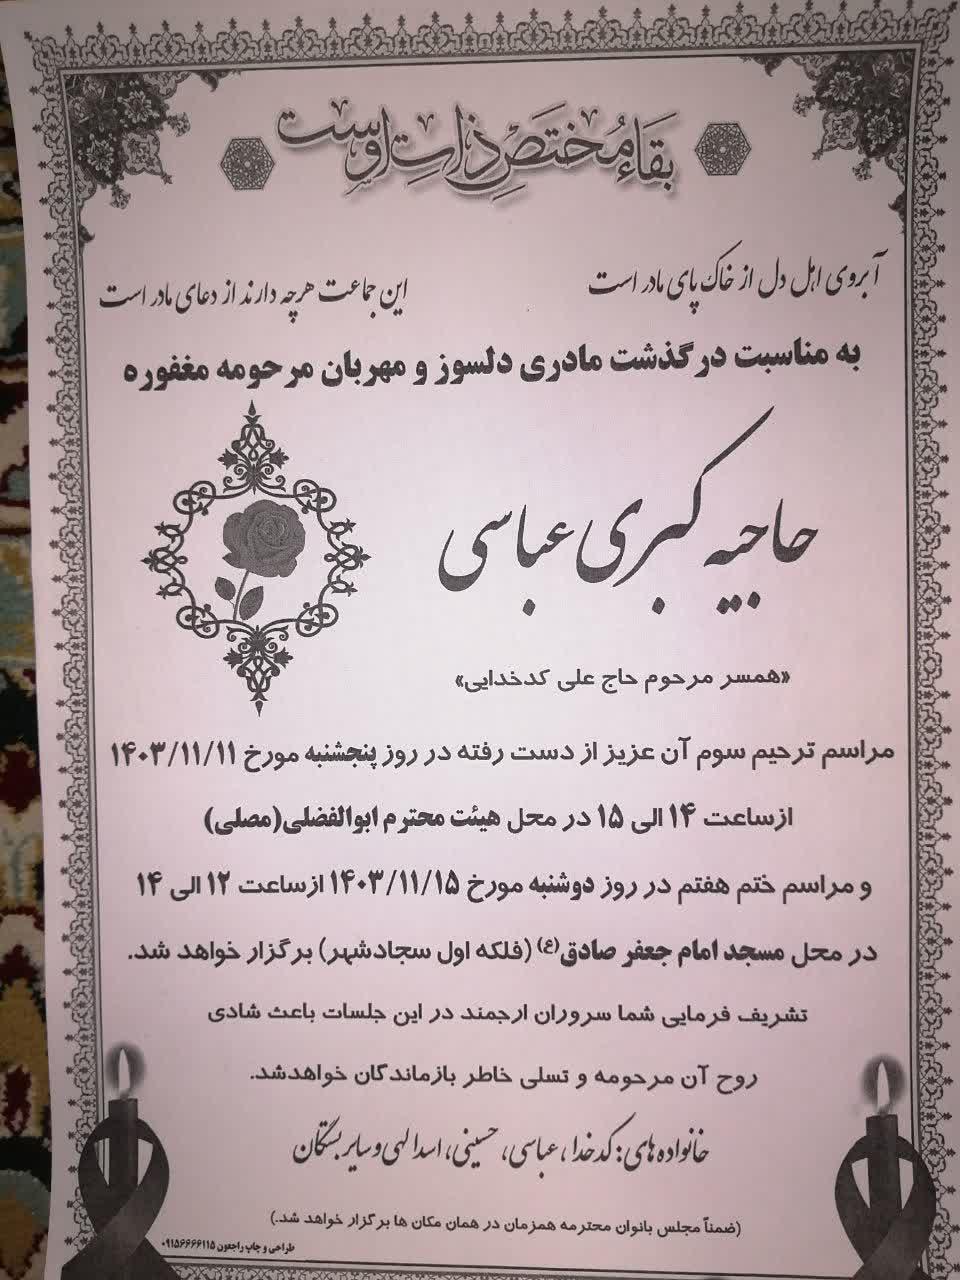 بقاء مختص ذات اوست
آبروی اهل دل از خاک پای مادر است
این جماعت هرچه دارند از دعای مادر است
به مناسبت درگذشت مادری دلسوز و مهربان مرحومه مغفوره
حاجیه کبری عباسی
«همسر مرحوم حاج علی کدخدایی»
مراسم ترحیم سوم آن عزیز از دست رفته در روز پنجشنبه مورخ ۱۴۰۳/۱۱/۱۱
ازساعت ۱۴ الی ۱۵ در محل هیئت محترم ابوالفضلی(مصلی)
و مراسم ختم هفتم در روز دوشنبه مورخ ۱۴۰۳/۱۱/۱۵ ازساعت ۱۲ الی ۱۴
در محل مسجد امام جعفر صادق(ع) (فلکه اول سجادشهر) برگزار خواهد شد.
تشریف فرمایی شما سروران ارجمند در این جلسات باعث شادی
روح آن مرحومه و تسلی خاطر بازماندگان خواهدشد.
خانواده های: کدخدا، عباسی، حسینی، اسدالهی و سایر بستگان
(ضمناً مجلس بانوان محترمه همزمان در همان مکان ها برگزار خواهد شد.)
طراحی و چاپ راجعون ۰۹۱۵۶۶۶۶۱۱۵